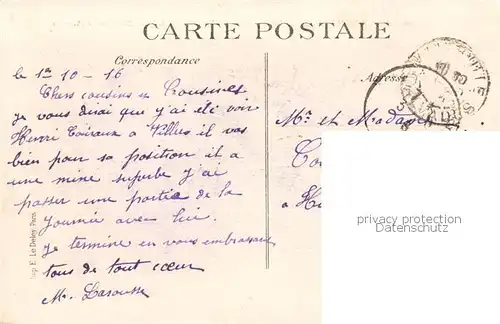 CARTE POSTALE
Correspondance
Adresse
le 1er 10 - 16
Chers cousins et Cousines
je vous dirai que j'ai été voir
Henri à il vas
bien pour sa position il a
une mine superbe j'ai
passer une partie de la
journée avec lui.
je termine en vous embrassant
tous de tout cœur
M. Larousse
Mr et Madame
à
privacy protection
Datenschutz
Imp. E. Le Deley, Paris